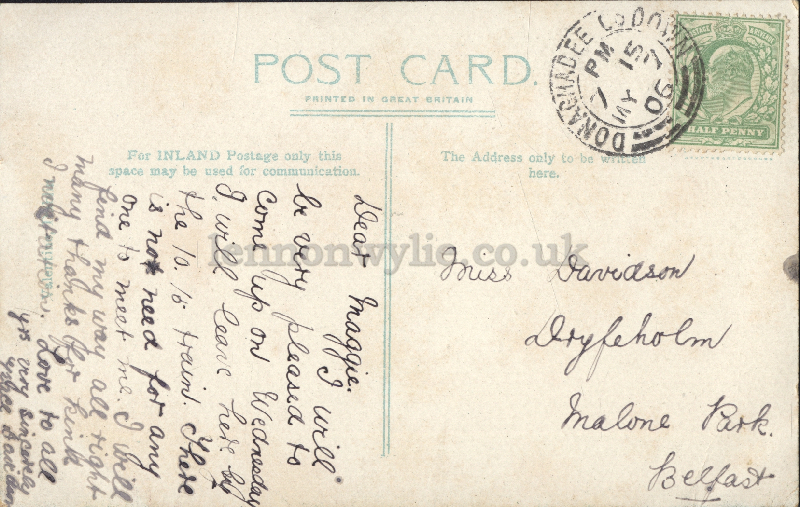 POST CARD.
PRINTED IN GREAT BRITAIN
For INLAND Postage only this
space may be used for communication.
The Address only to be written
here.
DONAGHADEE CO DOWN
7 PM
MY 15
06
HALF PENNY
Dear Maggie.
I will
be very pleased to
come up on Wednesday
I will leave here by
the 10.15 train. There
is not need for any
one to meet me. I will
find my way all right
many thanks for kind
Love to all
yrs very sincerely
Miss Davidson
Dryfeholm
Malone Park.
Belfast
lennonwylie.co.uk